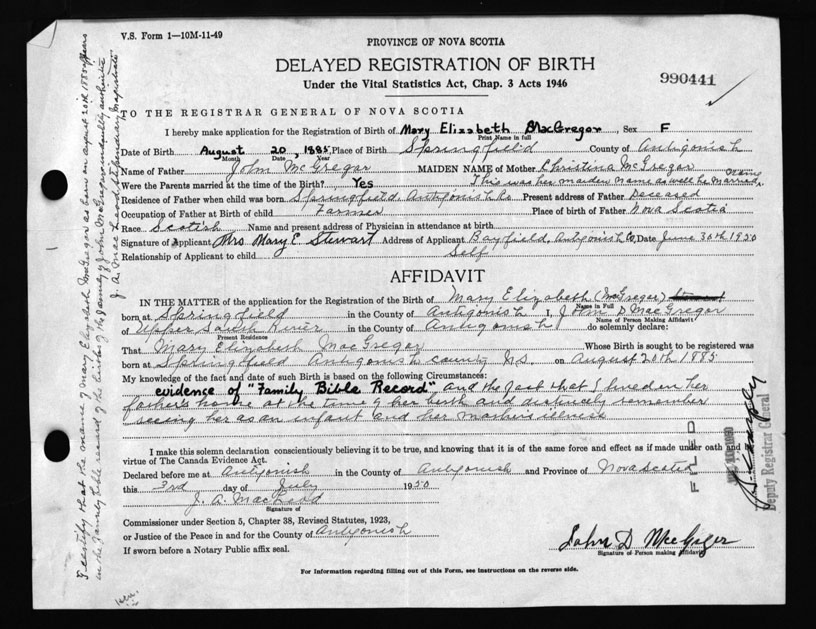 V.S. Form 1—10M-11-49
PROVINCE OF NOVA SCOTIA
DELAYED REGISTRATION OF BIRTH
Under the Vital Statistics Act, Chap. 3 Acts 1946
990441
TO THE REGISTRAR GENERAL OF NOVA SCOTIA
I hereby make application for the Registration of Birth of Mary Elizabeth MacGregor, Sex F
Print Name in full
Date of Birth August 20, 1885, Place of Birth Springfield County of Antigonish
Month Date Year
Name of Father John McGregor MAIDEN NAME of Mother Christina McGregor
Were the Parents married at the time of the Birth? Yes This was her maiden name as well as married name
Residence of Father when child was born Springfield, Antigonish Co Present address of Father Deceased
Occupation of Father at Birth of child Farmer Place of birth of Father Nova Scotia
Race Scotish Name and present address of Physician in attendance at birth
Signature of Applicant Mrs Mary E. Stewart Address of Applicant Bayfield, Antigonish Co, Date June 30th 1950
Relationship of Applicant to child Self
AFFIDAVIT
IN THE MATTER of the application for the Registration of the Birth of Mary Elizabeth (McGregor)
Name in Full
born at Springfield in the County of Antigonish I, John D MacGregor
Name of Person Making Affidavit
of Upper South River in the County of Antigonish do solemnly declare:
Present Residence
That Mary Elizabeth MacGregor Whose Birth is sought to be registered was
born at Springfield Antigonish county N.S. on August 20th 1885
My knowledge of the fact and date of such Birth is based on the following Circumstances:
evidence of "Family Bible Record" and the fact that I lived in her
father's home at the time of her birth and distinctly remember
seeing her as an infant and her mother's illness
I make this solemn declaration conscientiously believing it to be true, and knowing that it is of the same force and effect as if made under oath and
virtue of The Canada Evidence Act.
Declared before me at Antigonish in the County of Antigonish and Province of Nova Scotia
this 3rd day of July 1950
J. A. MacLeod
Signature of
Commissioner under Section 5, Chapter 38, Revised Statutes, 1923,
or Justice of the Peace in and for the County of Antigonish
If sworn before a Notary Public affix seal.
John D McGregor
Signature of Person making Affidavit
For Information regarding filling out of this Form, see instructions on the reverse side.
I certify that the name of Mary Elizabeth McGregor as born on August 20th 1885 appears
in the family bible record of the births of the family of John McGregor and fully authentic
J. A. MacLeod Stipendiary Magistrate
FILED
Deputy Registrar General